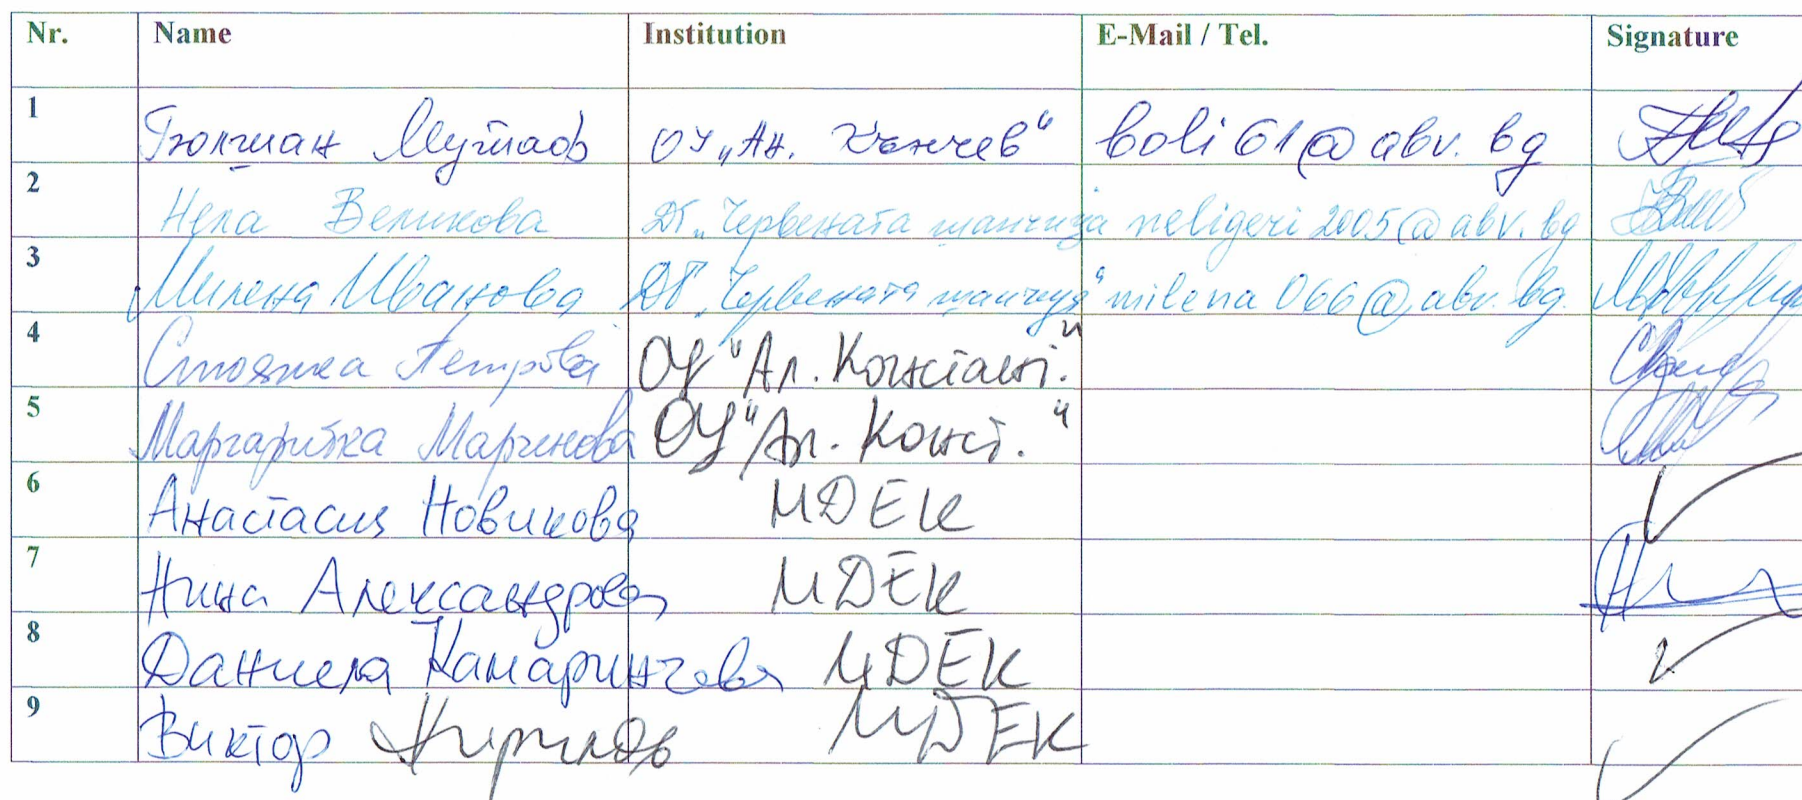 Nr. Name Institution E-Mail / Tel. Signature
1 Гюлгиан Мутлаов ОУ „Ан. Кънчев" boli61@abv.bg
2 Нела Великова ДГ „Червената шапчица neligeri2005@abv.bg
3 Милена Иванова ДГ „Червената шапчица" milena066@abv.bg.
4 Стоянка Петрова ОУ "Ал. Констант."
5 Маргаритка Маринова ОУ "Ал. Конст."
6 Анастасия Новикова МДЕК
7 Нина Александрова МДЕК
8 Даниела Камаринчева МДЕК
9 Виктор Кирилов МДЕК